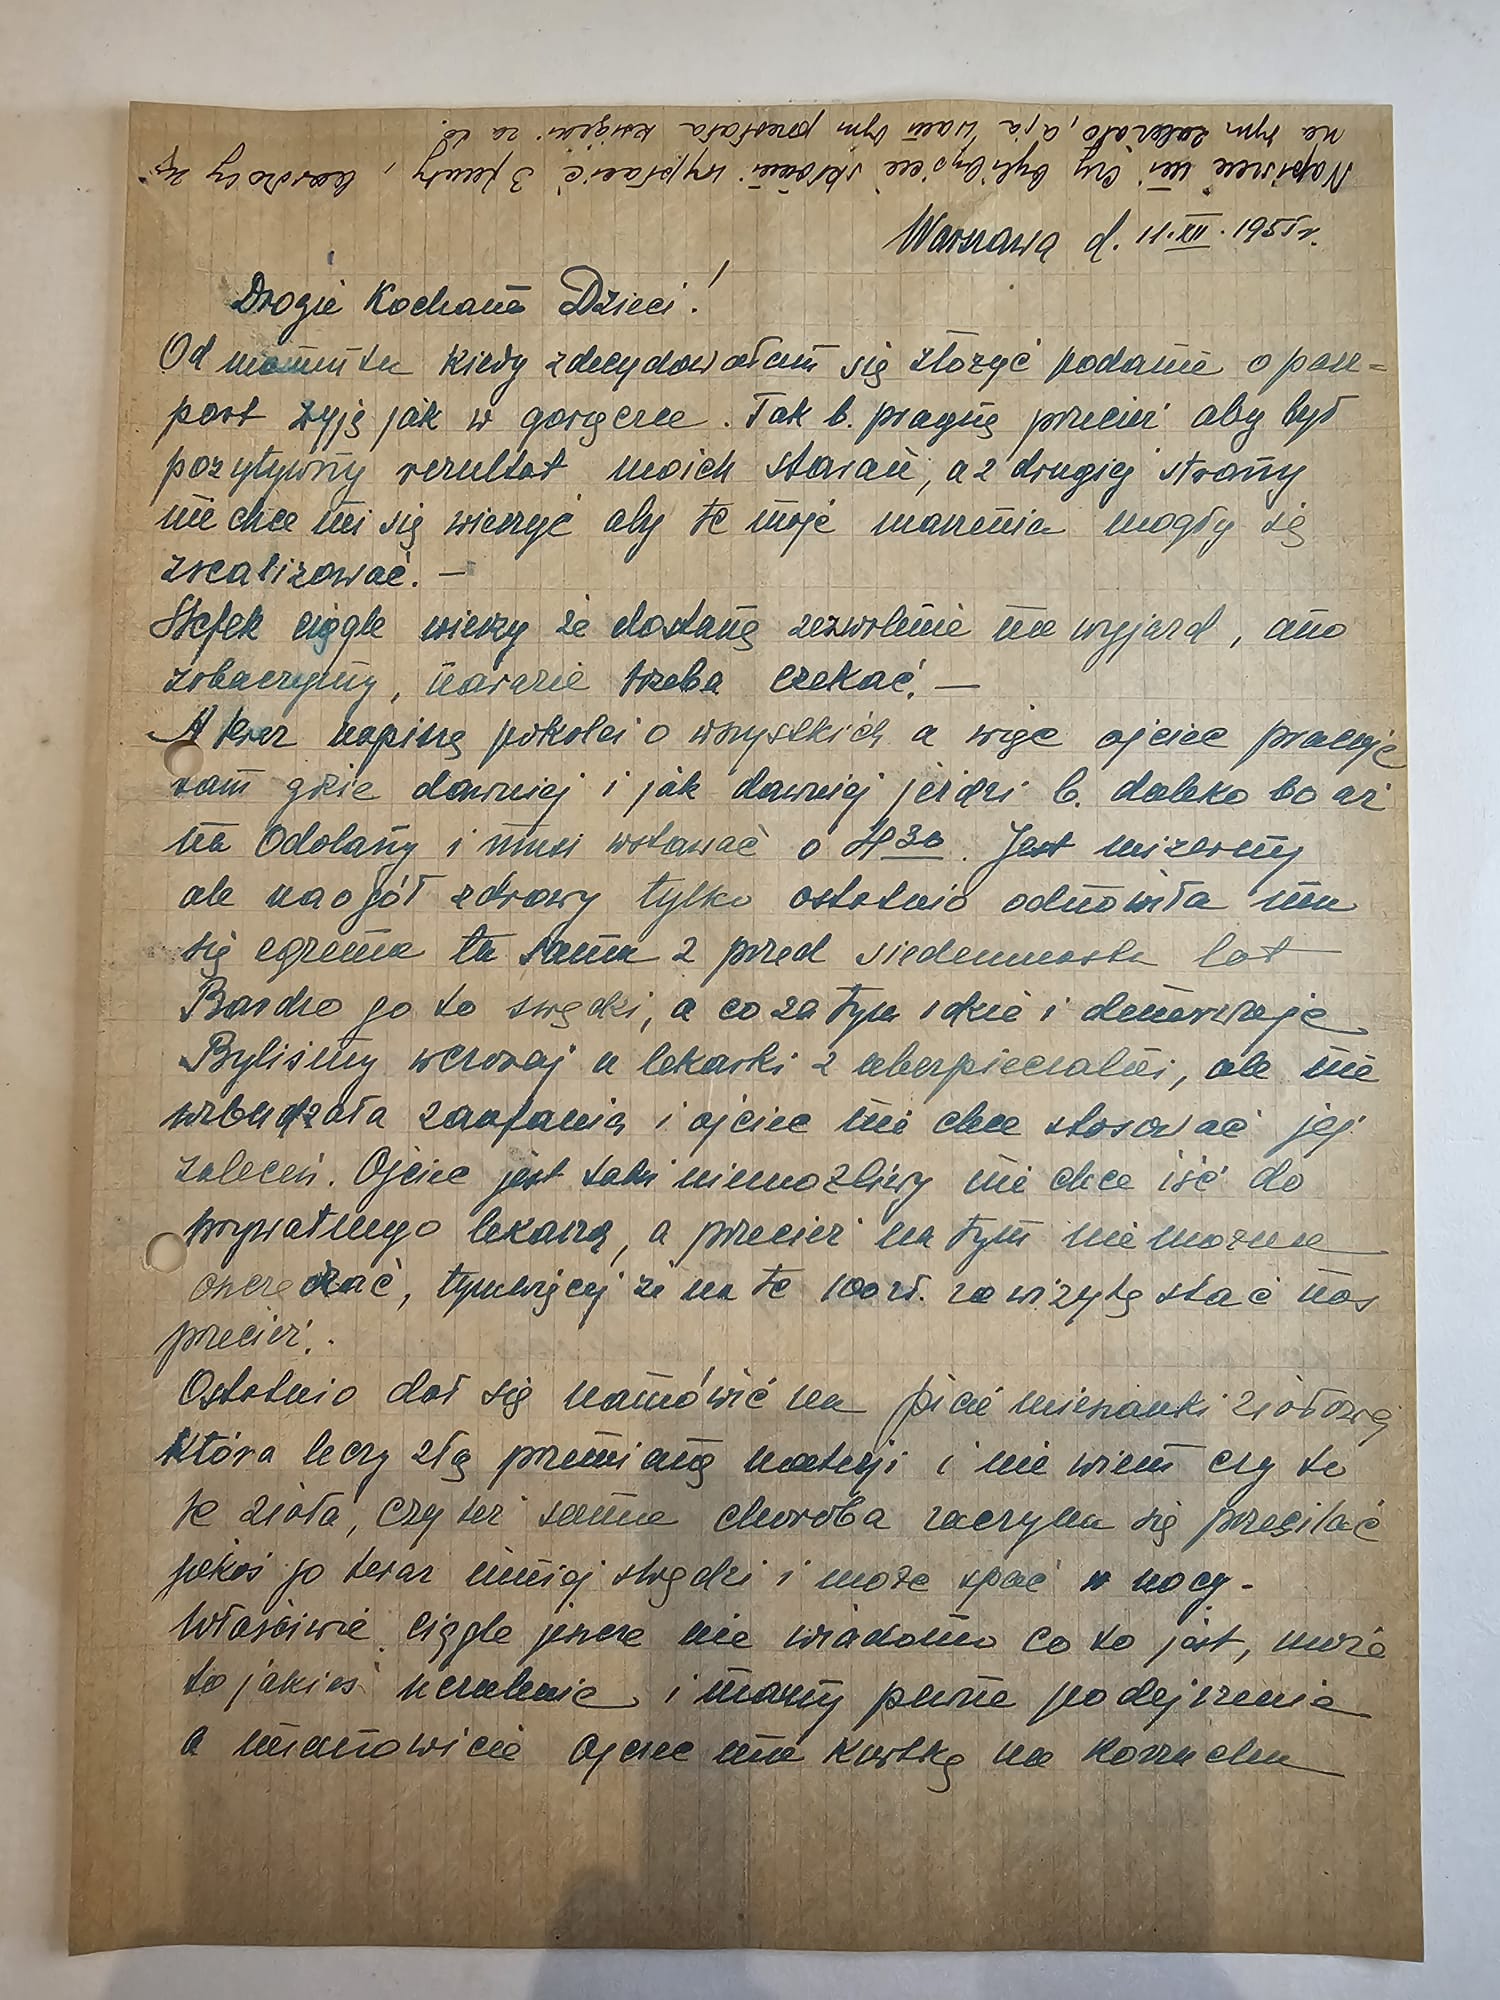 Napiszcie mi czy bylibyście skłonni wypłacić 3 funty, bardzo by
na tym zależało, a ja Wam bym przesłała książki za to.
Warszawa d. 11.XII.1955r.
Drogie Kochane Dzieci!
Od momentu kiedy zdecydowałam się złożyć podanie o pasz=
port żyję jak w gorączce. Tak b. pragnę przecież aby był
pozytywny rezultat moich starań, a z drugiej strony
nie chce mi się wierzyć aby te moje marzenia mogły się
zrealizować. —
Stefek ciągle wierzy że dostanę zezwolenie na wyjazd, ano
zobaczymy, narazie trzeba czekać. —
A teraz napiszę pokolei o wszystkich a więc ojciec pracuje
tam gdzie dawniej i jak dawniej jeździ b. daleko bo aż
na Odolany i musi wstawać o 4 30. Jest mizerny
ale naogół zdrowy tylko ostatnio odnowiła mu
się egzema ta sama z przed siedemnastu lat
Bardzo go to swędzi, a co za tym idzie i denerwuje
Byliśmy wczoraj u lekarki z ubezpieczalni, ale nie
wzbudzała zaufania i ojciec nie chce stosować jej
zaleceń. Ojciec jest taki niemożliwy nie chce iść do
prywatnego lekarza, a przecież na tym nie można
oszczędzać, tymwięcej że na te 100 zł. za wizytę stać nas
przecież.
Ostatnio dał się namówić na picie mieszanki ziołowej
która leczy złą przemianę materji i nie wiem czy to
te zioła, czy też sama choroba zaczyna się przesilać
jakoś go teraz mniej swędzi i może spać w nocy.
Właściwie ciągle jeszcze nie wiadomo co to jest, może
to jakieś uczulenie i mamy pewne podejrzenia
a mianowicie ojciec ma kurtkę na kożuchu